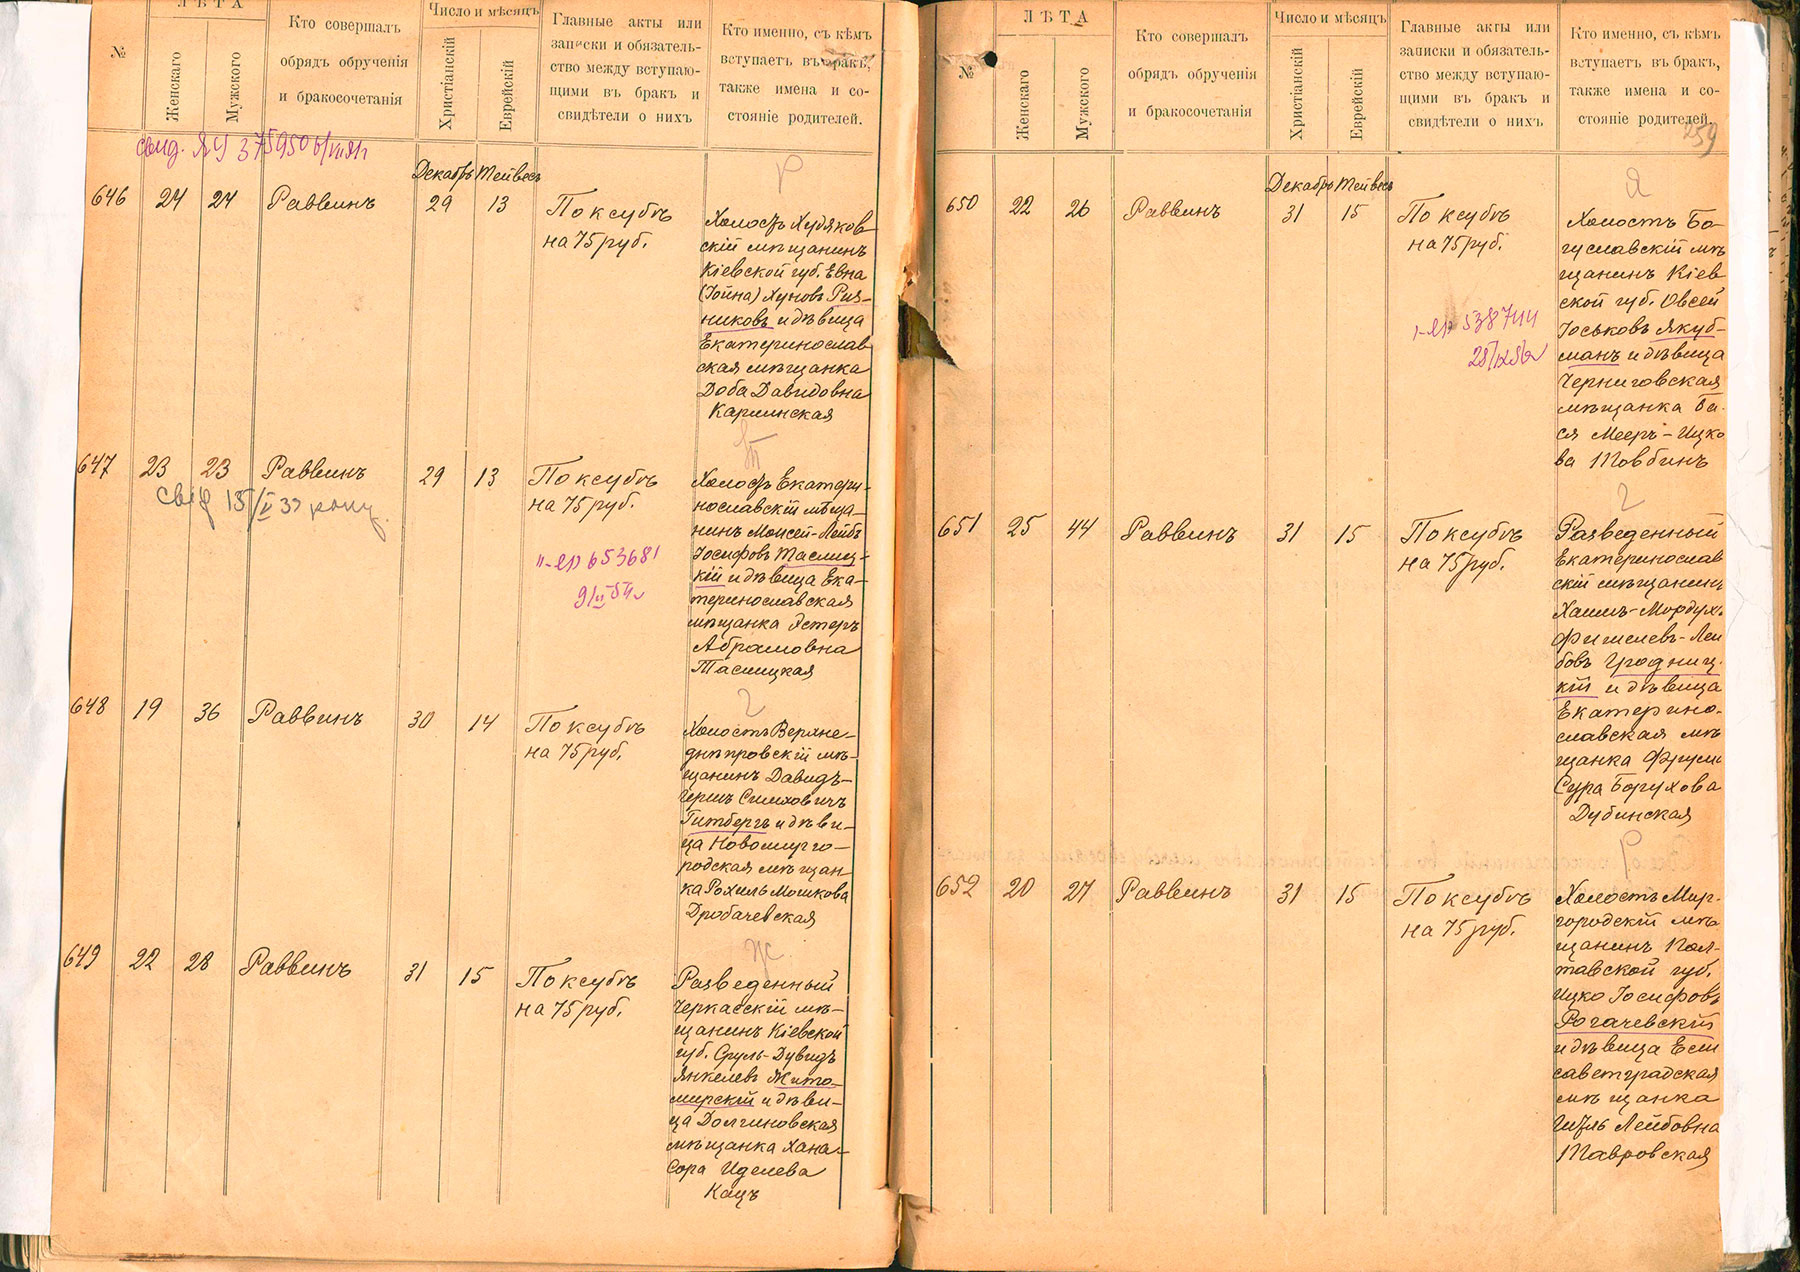 №
ЛѢТА
Женскаго
Мужского
Кто совершалъ
обрядъ обрученія
и бракосочетанія
Число и мѣсяцъ
Христіанскій
Еврейскій
Главные акты или
записки и обязатель-
ство между вступаю-
щими въ бракъ и
свидѣтели о нихъ
Кто именно, съ кѣмъ
вступаетъ въ бракъ,
также имена и со-
стояніе родителей.
свид. ЯУ 375950
Декабрь Тейвесъ
Р
646 24 24 Раввинъ 29 13
По ксубѣ
на 75 руб.
Холостъ Ходяков-
скій мѣщанинъ
Кіевской губ. Евна
(Іойна) Хуновъ Рия-
никовъ и дѣвица
Екатеринослав
ская мѣщанка
Доба Давидовна
Карлинская
Т
647 23 23 Раввинъ 29 13
свид 15/II 33 року.
По ксубѣ
на 75 руб.
653681
Холостъ Екатери-
нославскій мѣща-
нинъ Моисей-Лейбъ
Іосифовъ Таслиц-
кій и дѣвица Ека-
теринославская
мѣщанка Эстеръ
Абрамовна
Таслицкая
Г
648 19 36 Раввинъ 30 14
По ксубѣ
на 75 руб.
Холостъ Верхне-
днѣпровскій мѣ-
щанинъ Давидъ-
Гершъ Симховичъ
Гитбергъ и дѣви-
ца Новомирго-
родская мѣщан-
ка Рохиль Мошкова
Дробачевская
Ж
649 22 28 Раввинъ 31 15
По ксубѣ
на 75 руб.
Разведенный
Черкасскій мѣ-
щанинъ Кіевской
губ. Сруль-Дувидъ
Янкелевъ Жито-
мирскій и дѣви-
ца Долгиновская
мѣщанка Хана-
Сора Иделева
Кацъ
№
ЛѢТА
Женскаго
Мужского
Кто совершалъ
обрядъ обрученія
и бракосочетанія
Число и мѣсяцъ
Христіанскій
Еврейскій
Главные акты или
записки и обязатель-
ство между вступаю-
щими въ бракъ и
свидѣтели о нихъ
Кто именно, съ кѣмъ
вступаетъ въ бракъ,
также имена и со-
стояніе родителей.
259
Декабрь Тейвесъ
Я
650 22 26 Раввинъ 31 15
По ксубѣ
на 75 руб.
538744
Холостъ Бо-
гуславскій мѣ
щанинъ Кіев
ской губ. Овсей
Іоськовъ Якуб-
манъ и дѣвица
Черниговская
мѣщанка Ба-
ся Мееръ-Ицко
ва Товбинъ
Г
651 25 44 Раввинъ 31 15
По ксубѣ
на 75 руб.
Разведенный
Екатеринослав
скій мѣщанинъ
Хаимъ-Мордухъ
Фишелевъ-Лей
бовъ Гродниц-
кій и дѣвица
Екатерино-
славская мѣ
щанка Фрума
Сура Борухова
Дубинская
Р
652 20 27 Раввинъ 31 15
По ксубѣ
на 75 руб.
Холостъ Мир-
городскій мѣ
щанинъ Пол-
тавской губ.
Ицко Іосифовъ
Рогачевскій
и дѣвица Ели
саветградская
мѣщанка
Гитль Лейбовна
Тавровская